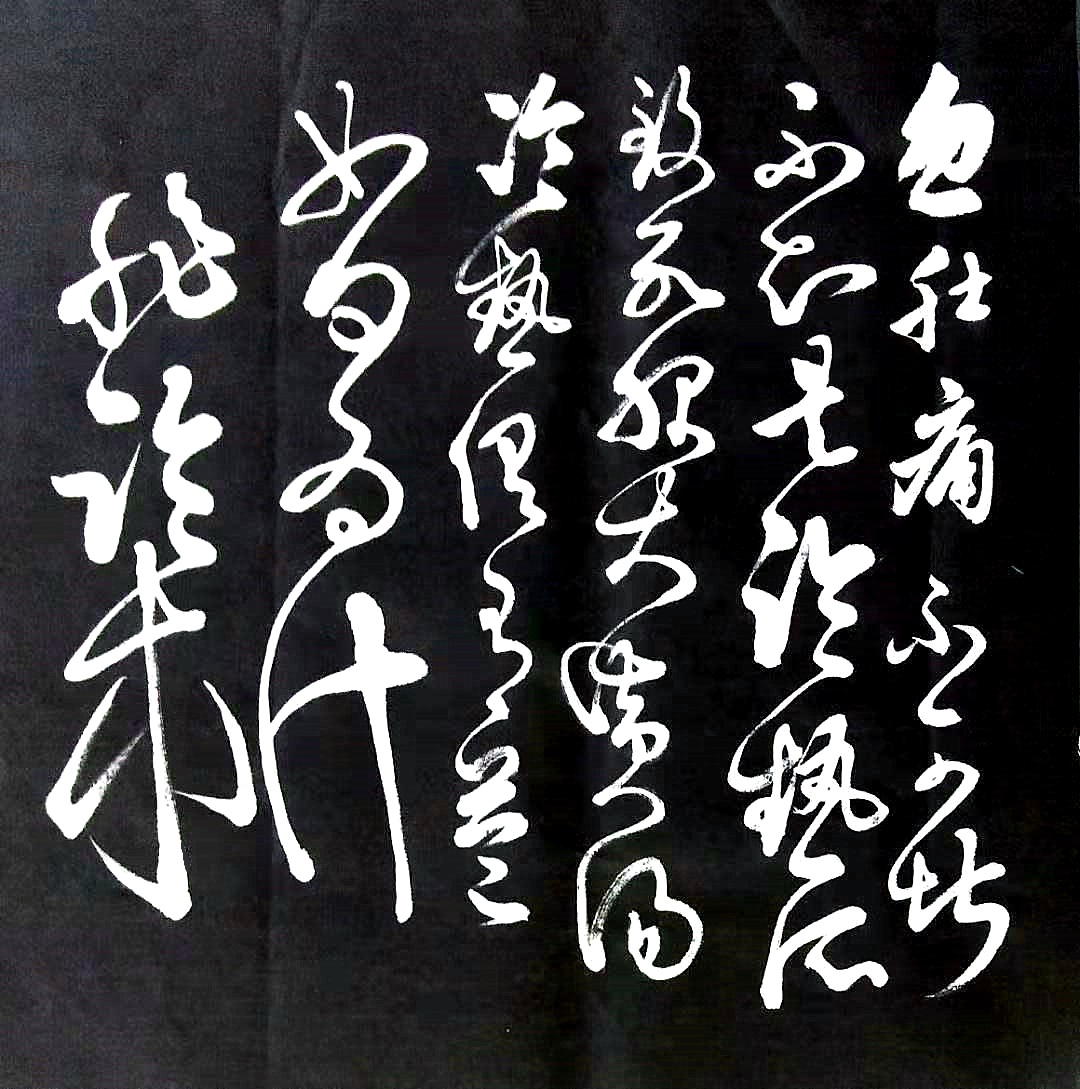 忽肚痛不可堪
不知是冷热所
致欲服大黄汤
冷热俱有益
如何为计
非临床